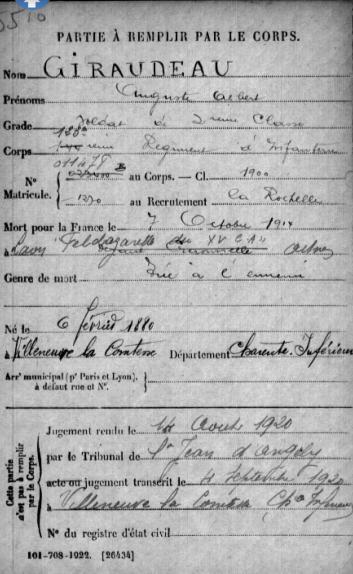 PARTIE À REMPLIR PAR LE CORPS.
Nom GIRAUDEAU
Prénoms Auguste Albert
Grade Soldat de 2eme Classe
138e
Corps eme Regiment d'Infanterie
011479 B
N° au Corps. — Cl. 1900
Matricule. 1270 au Recrutement La Rochelle
Mort pour la France le 7 Octobre 1914
à Laon Feldlazarette du XV C.A. Aisne
Genre de mort Tué à l'ennemi
Né le 6 février 1880
à Villeneuve la Comtesse Département Charente-Inférieure
Arrt municipal (pr Paris et Lyon),
à défaut rue et N°.
Cette partie n'est pas à remplir par le Corps.
Jugement rendu le Aout 1920
par le Tribunal de St Jean d'Angely
acte ou jugement transcrit le 4 Septembre 1920
à Villeneuve la Comtesse Chte Infre
N° du registre d'état civil
101-708-1922. [26434]